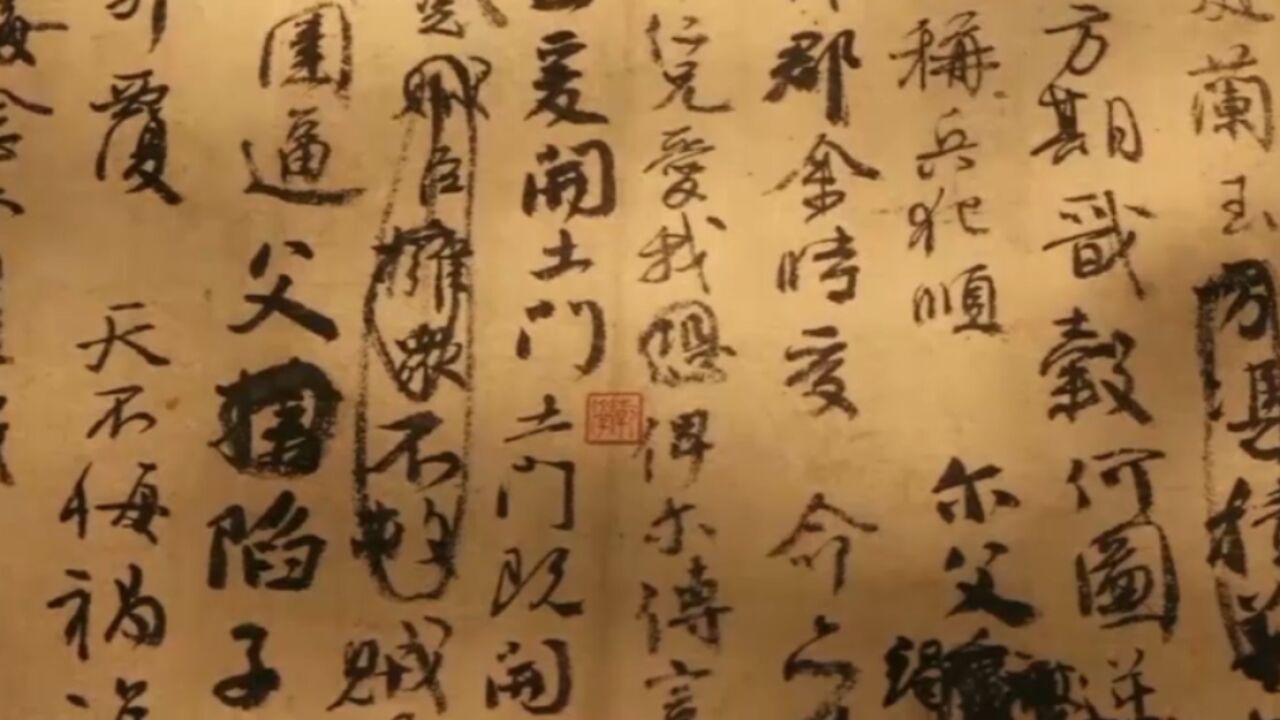 蘭玉
方期戩穀何圖逆
稱兵犯順 尔父
郡余時受 命
仁兄愛我俾尔傳言
爰開土門土門既開
賊臣擁衆不救賊
圍逼父陷子
覆 天不悔禍